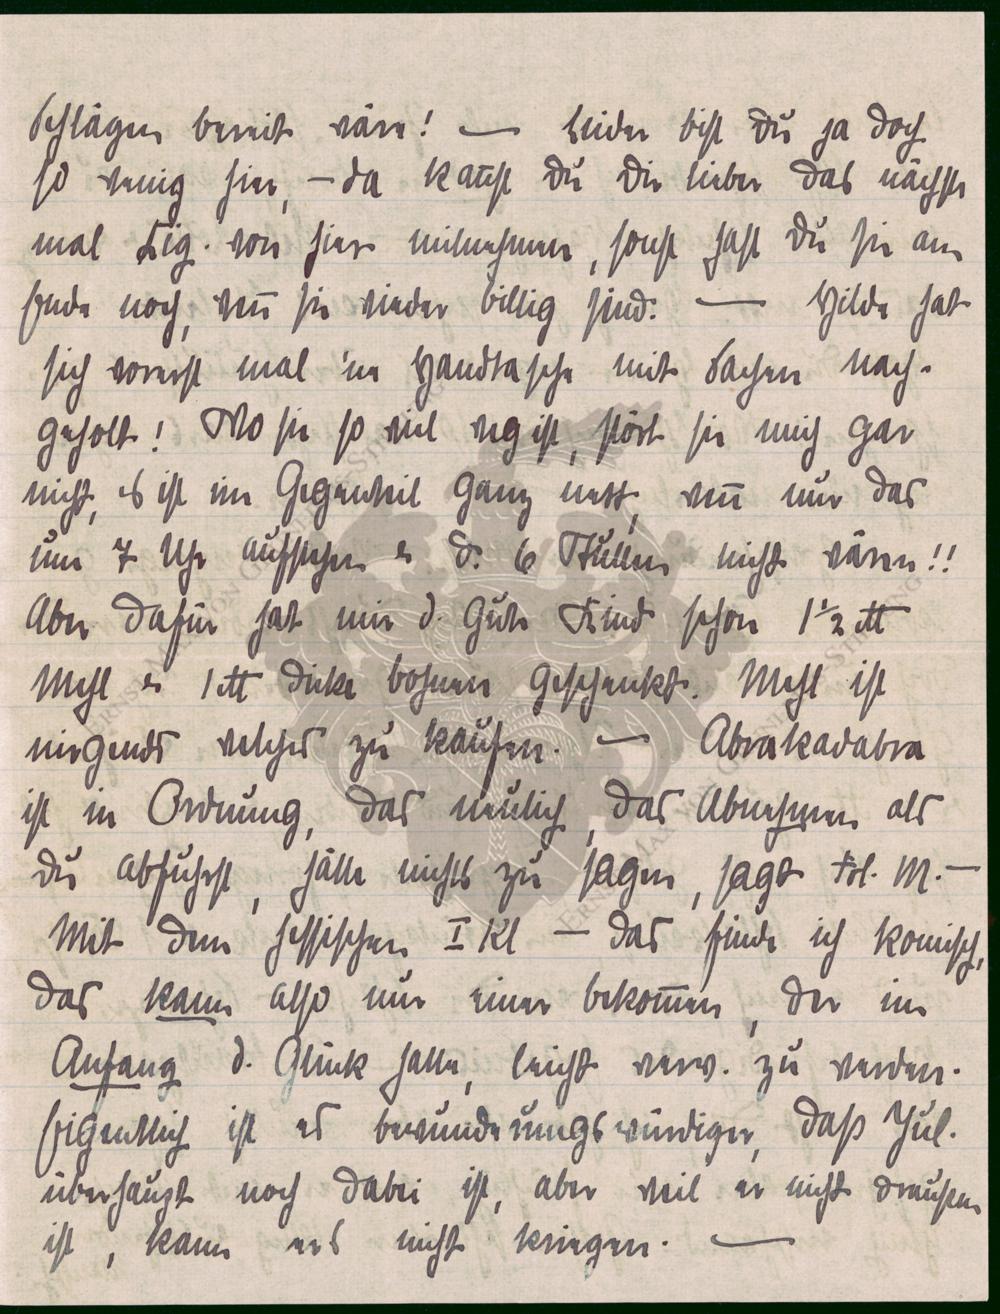 Schlägen bereit wäre! — Leider bist Du ja doch
so wenig hier, — da kaufst Du Dir lieber das nächste
mal Zig. von hier mitnehmen, sonst hast Du sie am
Ende noch, wen̄ sie wieder billig sind. — Hilde hat
sich vorerst mal 'ne Handtasche mit Sachen nach-
geholt! Wo sie so viel weg ist, stört sie mich gar
nicht, es ist im Gegenteil ganz nett, wen̄ nur das
um 7 Uhr aufstehen & d. 6 Stullen nicht wären!!
Aber dafür hat mir d. gute Kind schon 1½ ℔
Mehl & 1 ℔ dicke Bohnen geschenkt. Mehl ist
nirgends welches zu kaufen. — Abrakadabra
ist in Ordnung, das neulich, das Abnehmen als
Du abfuhrst, hätte nichts zu sagen, sagt Frl. M. —
Mit dem hessischen I Kl — das finde ich komisch,
das kann also nur einer bekom̄en, der im
Anfang d. Glück hatte, leicht verw. zu werden.
Eigentlich ist es bewunderungswürdiger, daß Jul.
überhaupt noch dabei ist, aber weil er nicht draußen
ist, kann ers nicht kriegen. —